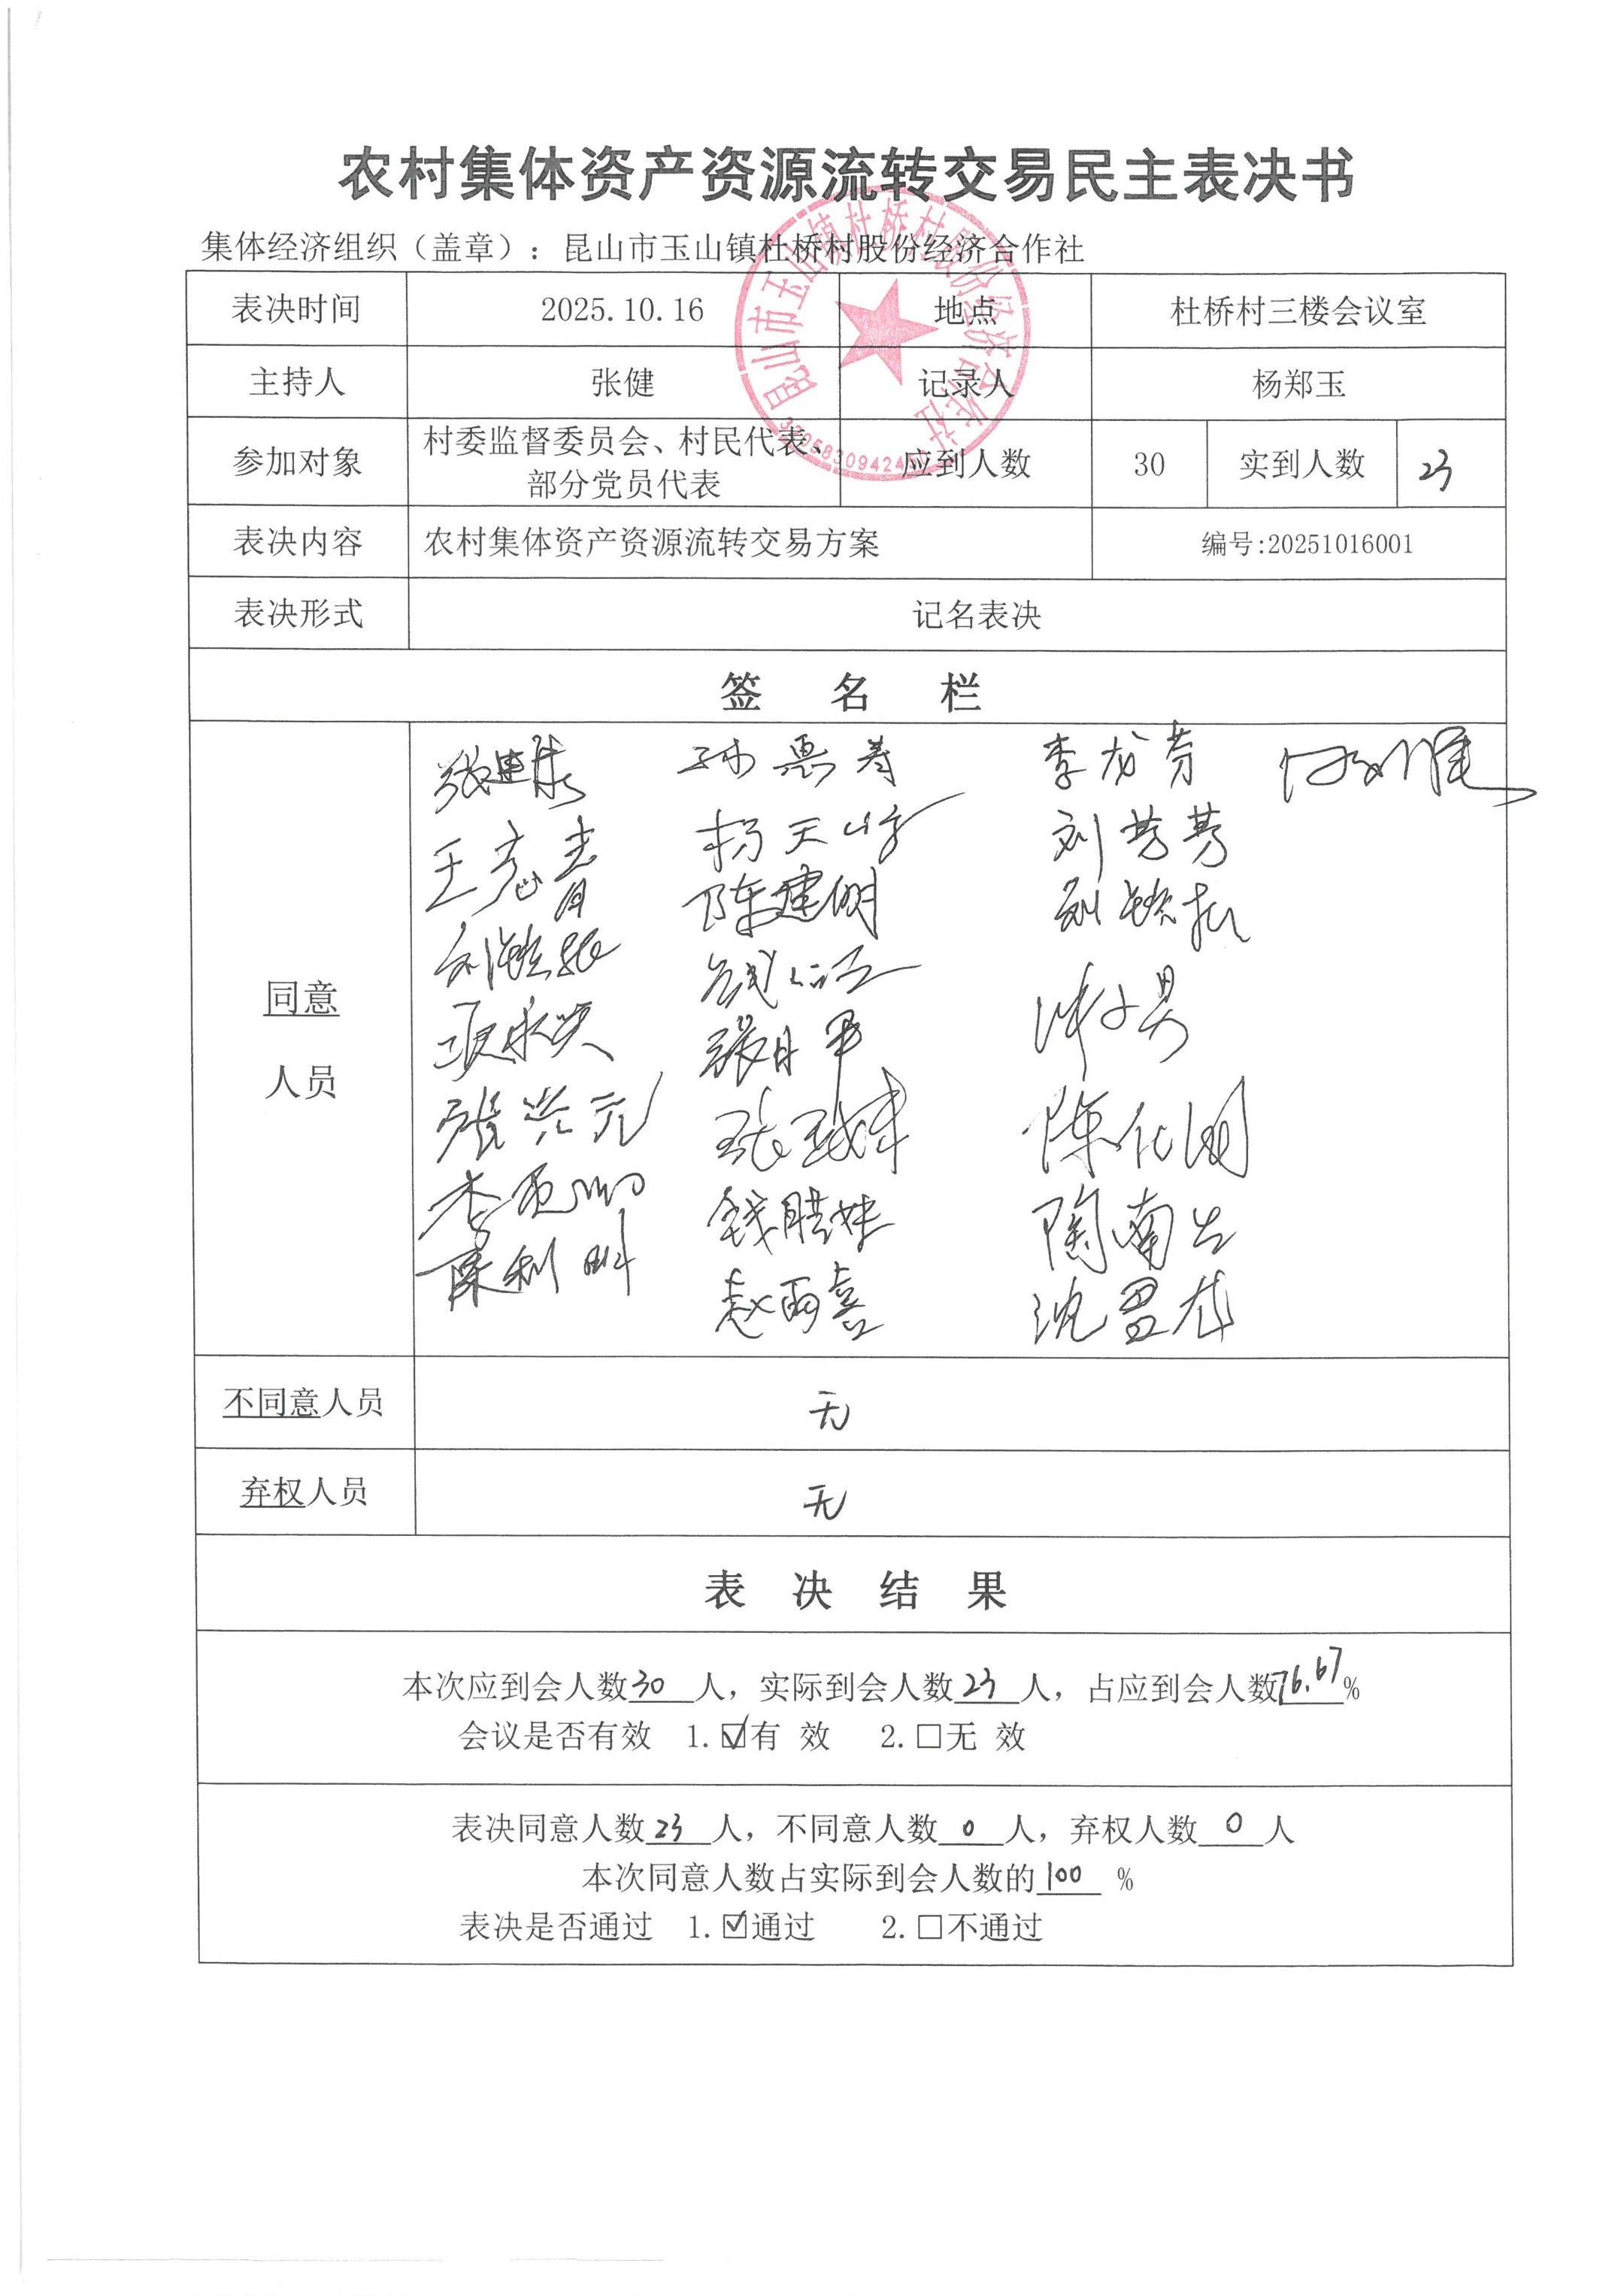 农村集体资产资源流转交易民主表决书
集体经济组织（盖章）：昆山市玉山镇杜桥村股份经济合作社
昆山市玉山镇杜桥村股份经济合作社
表决时间 2025.10.16 地点 杜桥村三楼会议室
主持人 张健 记录人 杨郑玉
参加对象 村委监督委员会、村民代表、
部分党员代表 应到人数 30 实到人数 23
表决内容 农村集体资产资源流转交易方案 编号:20251016001
表决形式 记名表决
签 名 栏
孙惠寿 李龙芳
王志青 杨天 刘芳芳
陈建明
张月
同意
人员
张兴元 陈
李 钱腊妹 陶南
利明 赵雨喜 沈
不同意人员 无
弃权人员 无
表 决 结 果
本次应到会人数30人，实际到会人数23人，占应到会人数76.67%
会议是否有效 1.☑有 效 2.□无 效
表决同意人数23人，不同意人数0人，弃权人数0人
本次同意人数占实际到会人数的100 %
表决是否通过 1.☑通过 2.□不通过